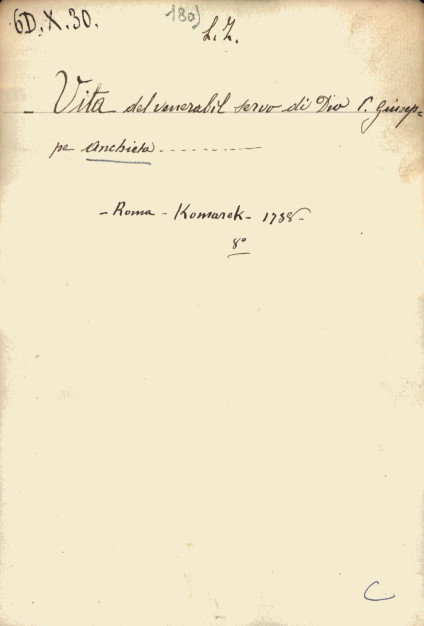 6D.X.30.
180)
L.Z.
- Vita del venerabil servo di Dio P. Giusep=
pe Anchieta - - - - - - - - -
- Roma - Komarek - 1738 -
8°
C